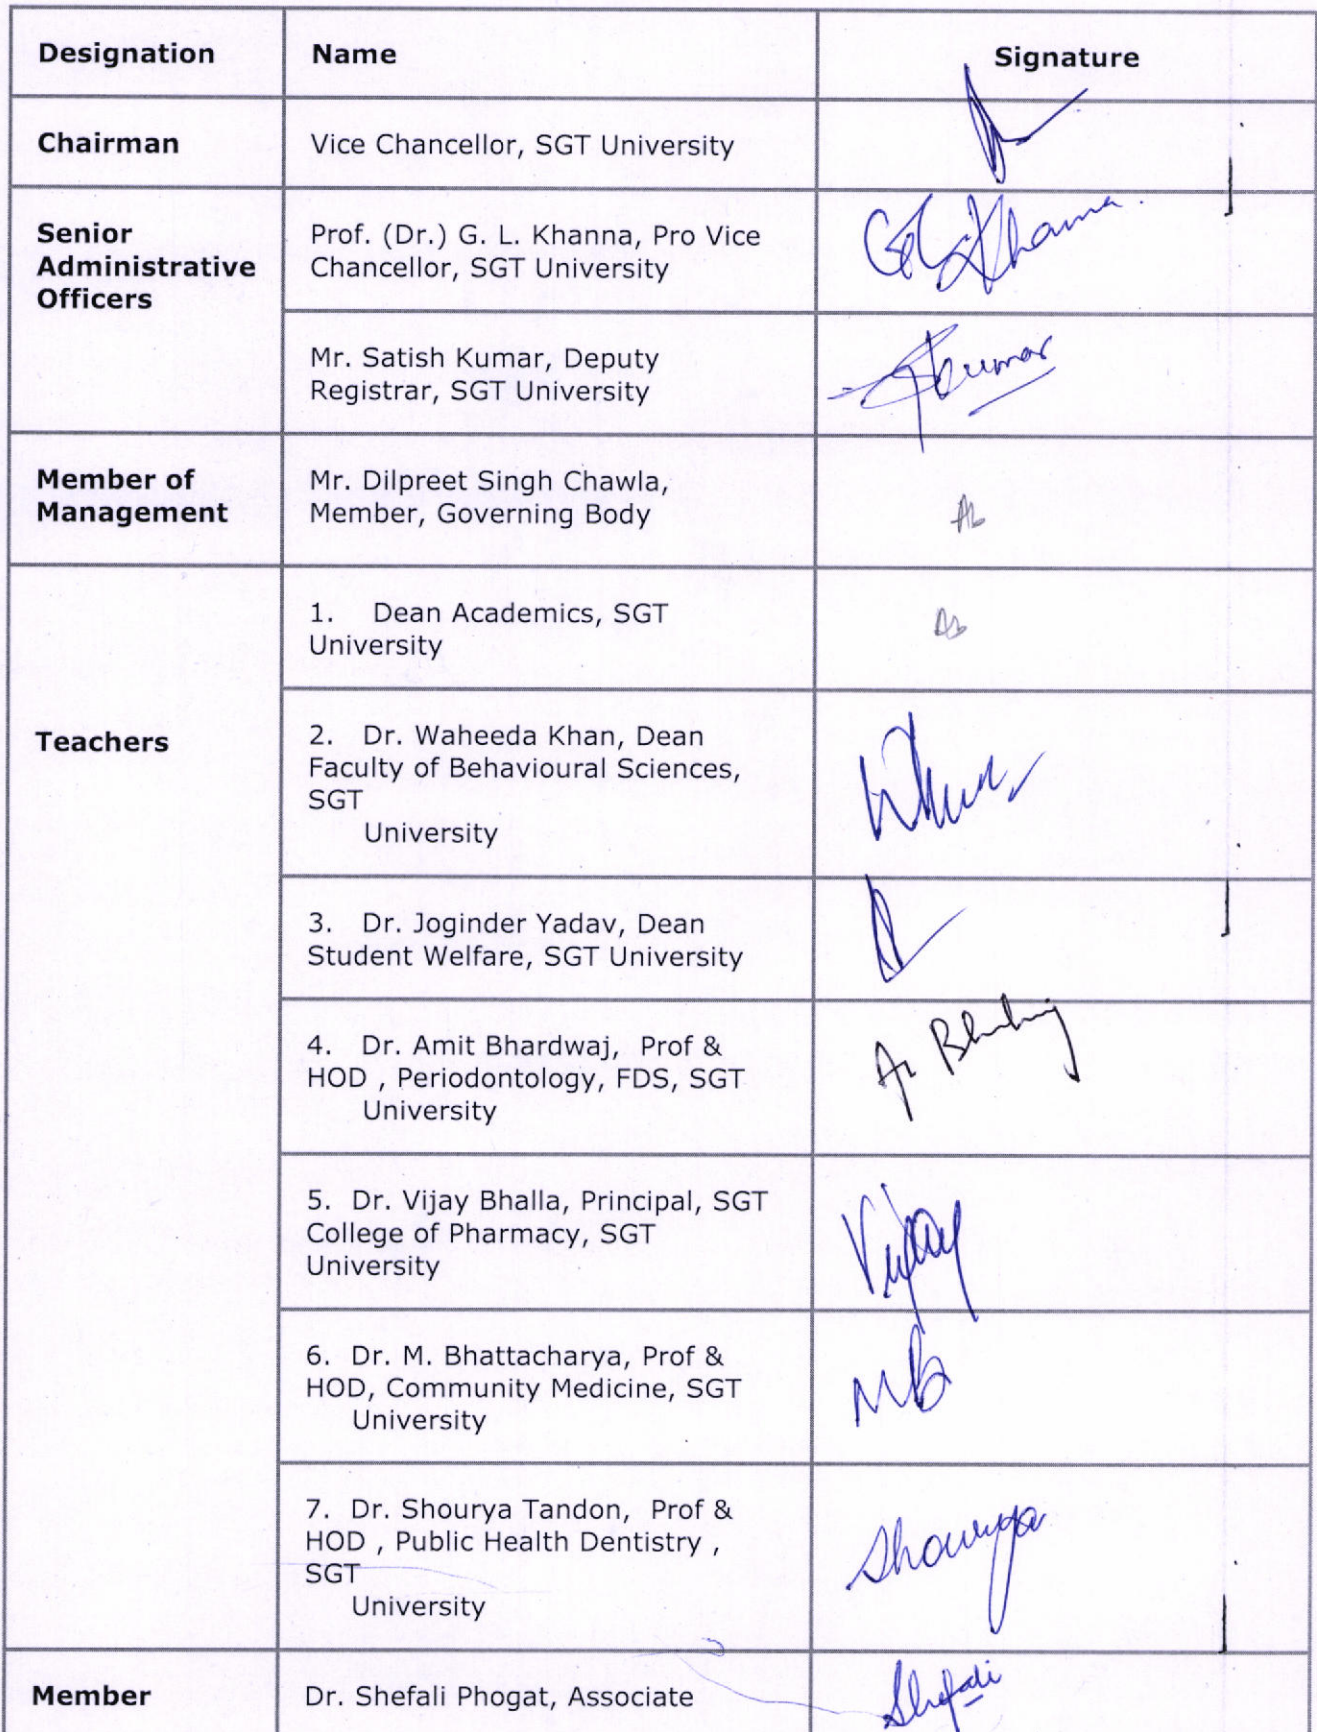 Designation Name Signature
Chairman Vice Chancellor, SGT University
Senior
Administrative
Officers
Prof. (Dr.) G. L. Khanna, Pro Vice
Chancellor, SGT University
G L Khanna
Mr. Satish Kumar, Deputy
Registrar, SGT University
Skumar
Member of
Management
Mr. Dilpreet Singh Chawla,
Member, Governing Body
Ab
Teachers
1. Dean Academics, SGT
University
Ab
2. Dr. Waheeda Khan, Dean
Faculty of Behavioural Sciences,
SGT
University
3. Dr. Joginder Yadav, Dean
Student Welfare, SGT University
4. Dr. Amit Bhardwaj, Prof &
HOD , Periodontology, FDS, SGT
University
5. Dr. Vijay Bhalla, Principal, SGT
College of Pharmacy, SGT
University
Vijay
6. Dr. M. Bhattacharya, Prof &
HOD, Community Medicine, SGT
University
MB
7. Dr. Shourya Tandon, Prof &
HOD , Public Health Dentistry ,
SGT
University
Shourya
Member Dr. Shefali Phogat, Associate Shefali